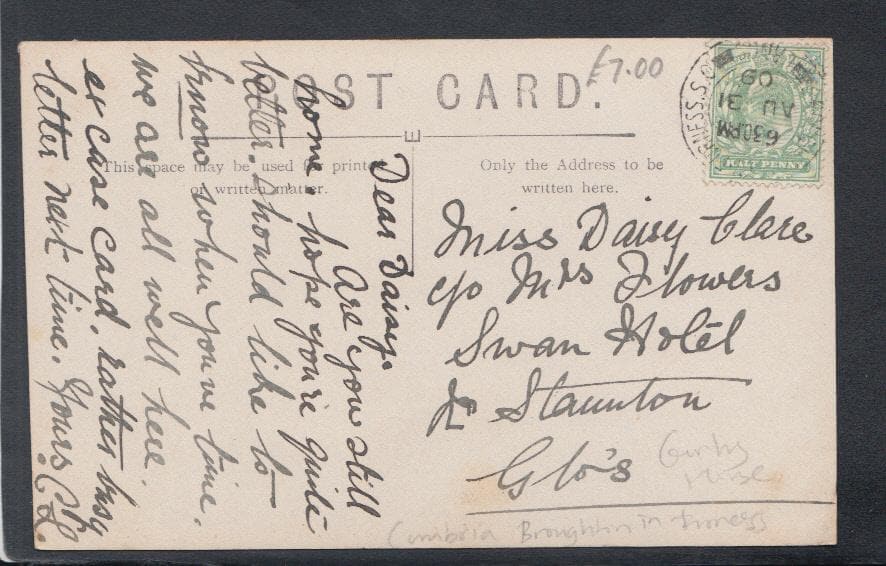 POST CARD.
£7.00
This space may be used for printed
or written matter.
Only the Address to be
written here.
E
HALF PENNY
6.30PM
AU 31
09
Dear Daisy.
Are you still
home, hope you're quite
better. Should like to
know when you've time.
we are all well here.
excase card. rather busy
letter next time. Yours
Miss Daisy Clare
c/o Mrs Flowers
Swan Hotel
Nr Staunton
Glo's
Cumbria Broughton in Furness